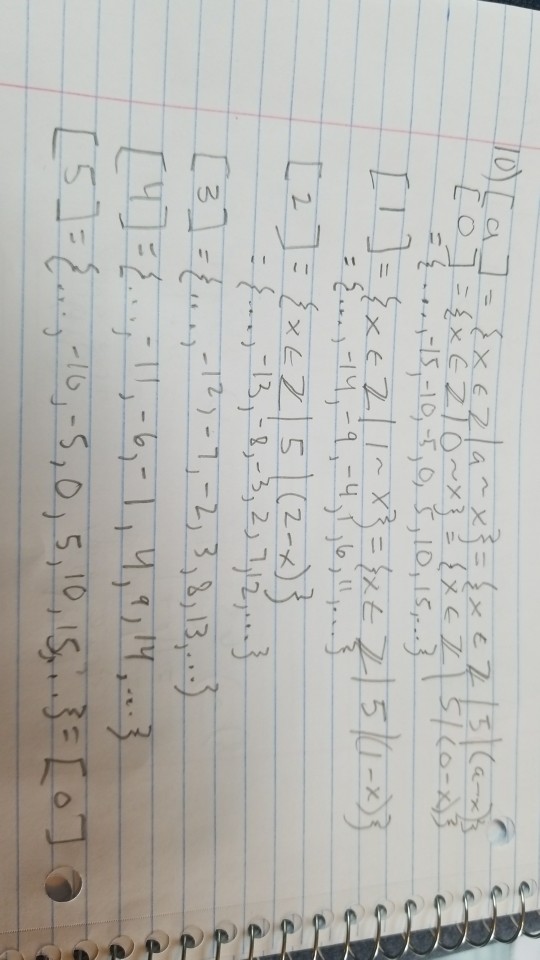 10) [a] = {x ∈ Z | a ~ x} = {x ∈ Z | 5 | (a-x)}
[0] = {x ∈ Z | 0 ~ x} = {x ∈ Z | 5 | (0-x)}
= {..., -15, -10, -5, 0, 5, 10, 15, ...}
[1] = {x ∈ Z | 1 ~ x} = {x ∈ Z | 5 | (1-x)}
= {..., -14, -9, -4, 1, 6, 11, ...}
[2] = {x ∈ Z | 5 | (2-x)}
= {..., -13, -8, -3, 2, 7, 12, ...}
[3] = {..., -12, -7, -2, 3, 8, 13, ...}
[4] = {..., -11, -6, -1, 4, 9, 14, ...}
[5] = {..., -10, -5, 0, 5, 10, 15, ...} = [0]